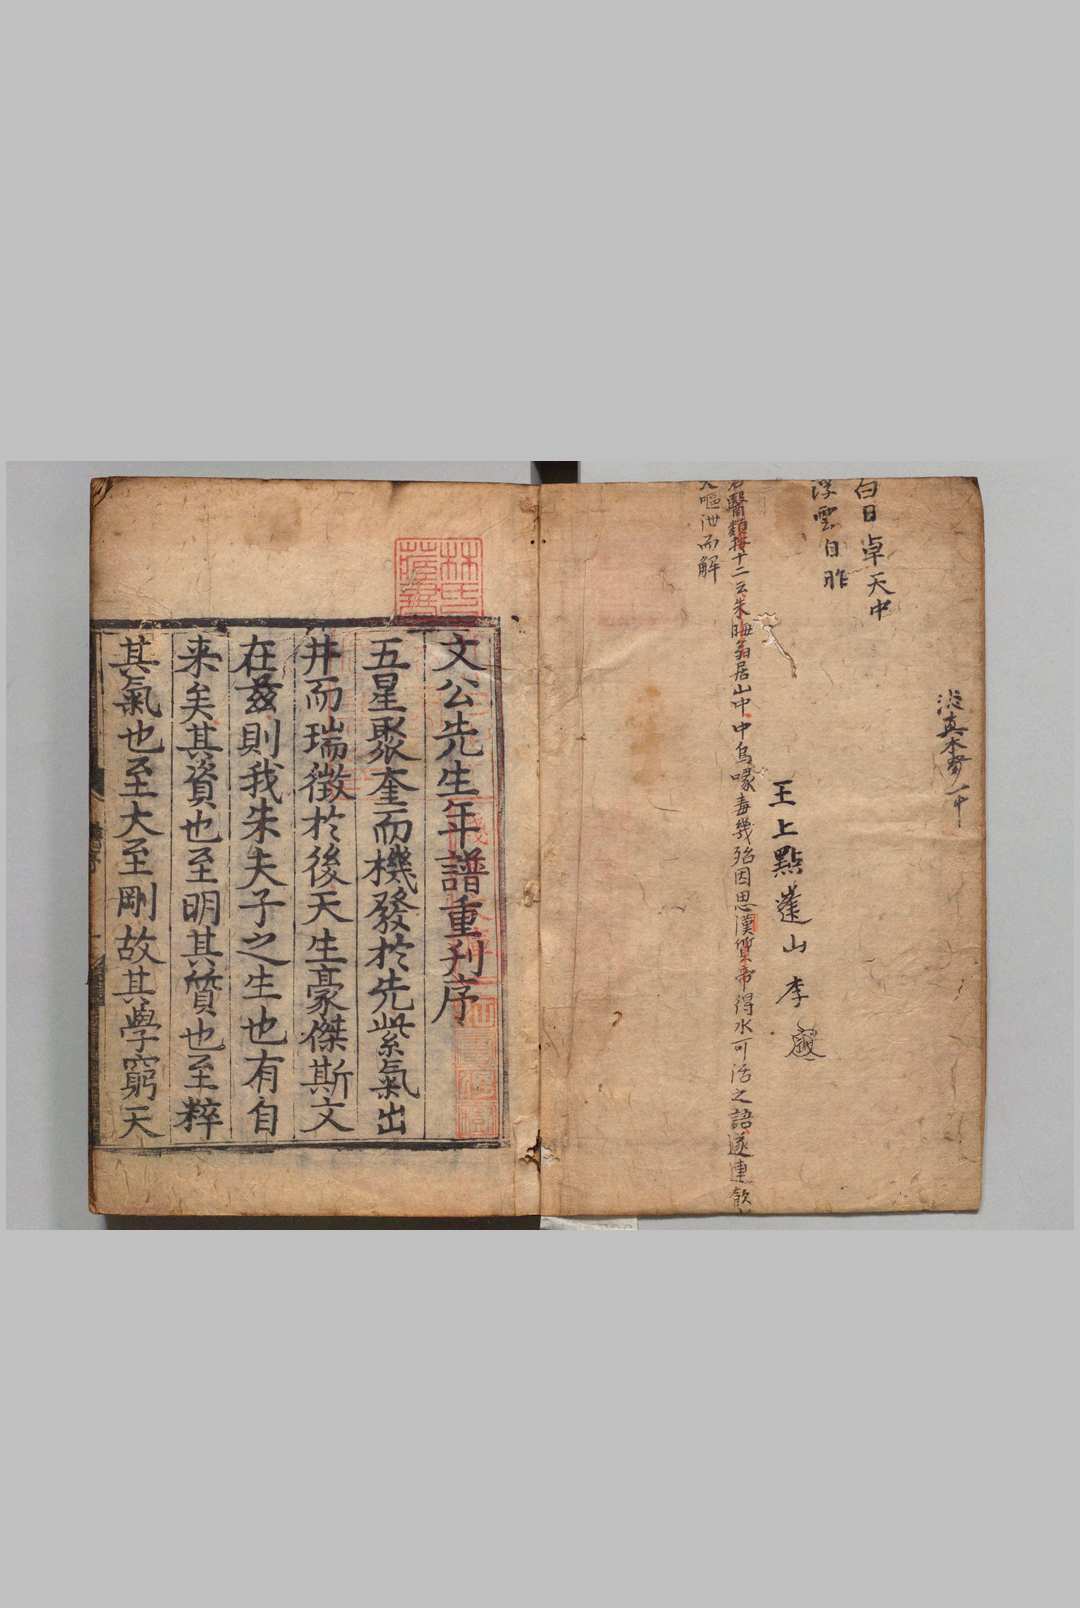 白日卓天中
浮雲自昨
王上點蓬山 李
醫類按十二云朱晦翁居山中中烏喙毒幾殆因思漢質帝得水可活之語遂連飲
嘔泄而解
文公先生年譜重刋序
五星聚奎而機發於先紫氣出
井而瑞徵於後天生豪傑斯文
在茲則我朱夫子之生也有自
来矣其資也至明其質也至粹
其氣也至大至剛故其學窮天